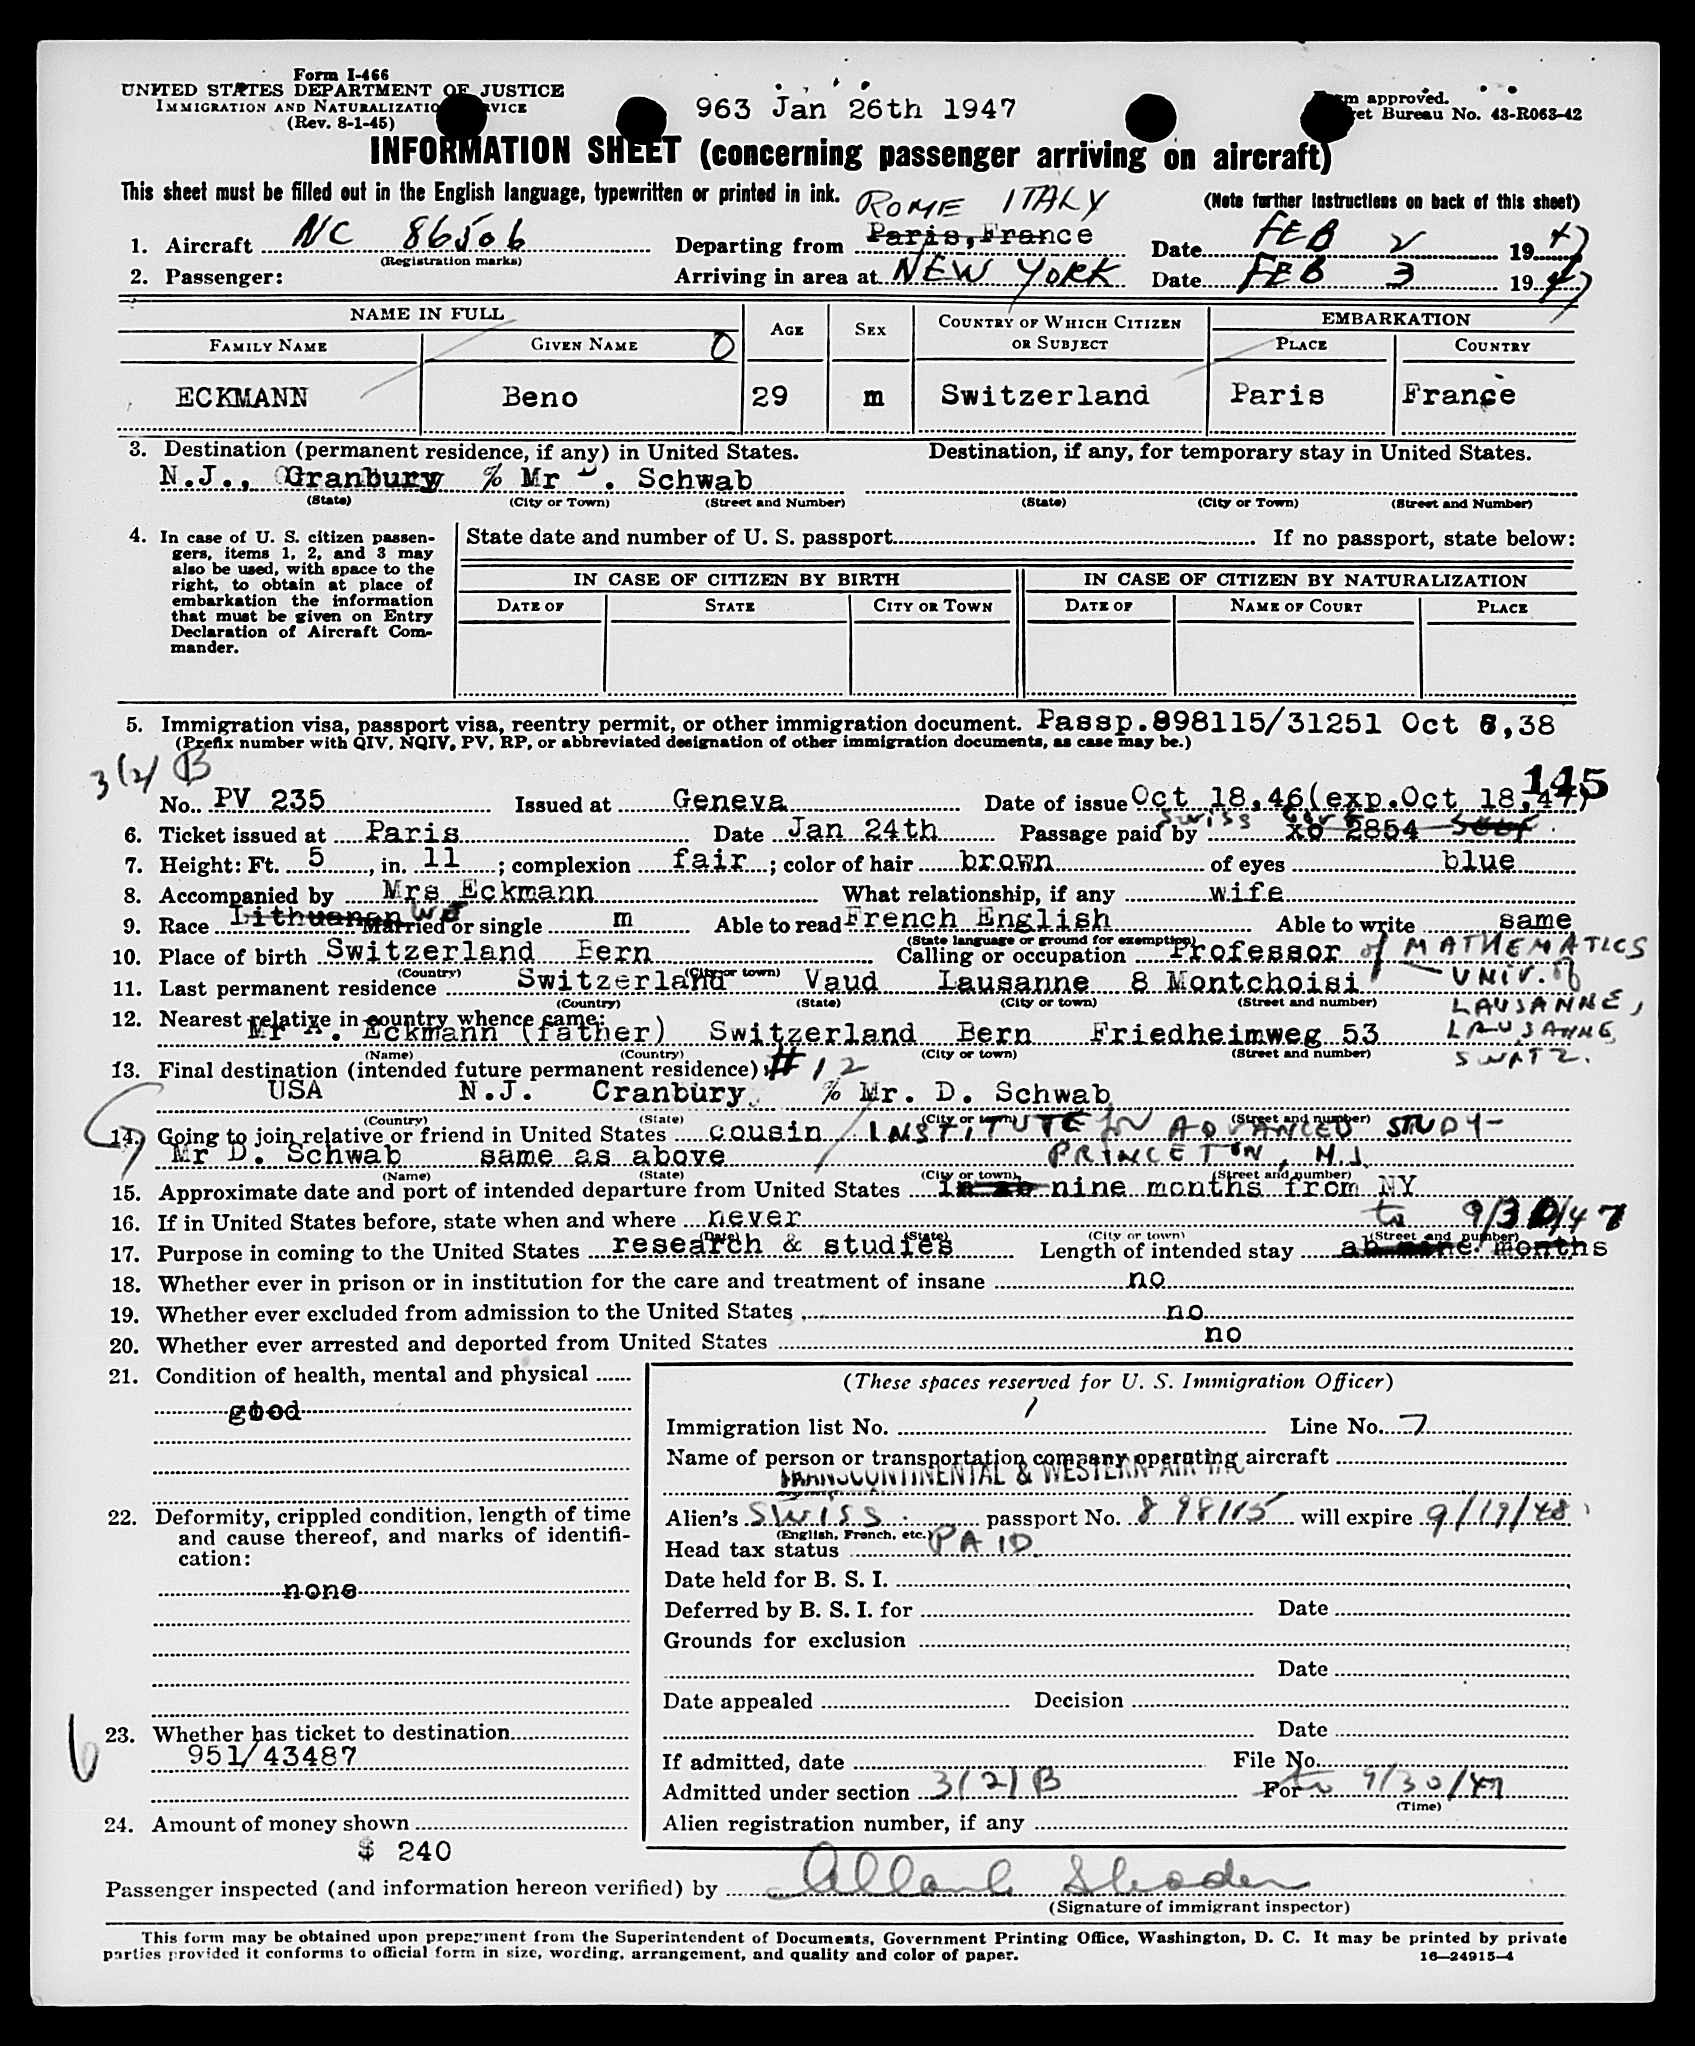 Form I-466
UNITED STATES DEPARTMENT OF JUSTICE
IMMIGRATION AND NATURALIZATION SERVICE
(Rev. 8-1-45)
963 Jan 26th 1947
Form approved.
Budget Bureau No. 43-R063-42
INFORMATION SHEET (concerning passenger arriving on aircraft)
This sheet must be filled out in the English language, typewritten or printed in ink.
(Note further instructions on back of this sheet)
ROME ITALY
1. Aircraft NC 86506 Departing from Paris, France Date FEB 2 1947
(Registration marks)
2. Passenger: Arriving in area at NEW YORK Date FEB 3 1947
NAME IN FULL AGE SEX COUNTRY OF WHICH CITIZEN OR SUBJECT EMBARKATION
FAMILY NAME GIVEN NAME PLACE COUNTRY
ECKMANN Beno 29 m Switzerland Paris France
3. Destination (permanent residence, if any) in United States. Destination, if any, for temporary stay in United States.
N.J., Granbury % Mr D. Schwab
(State) (City or Town) (Street and Number) (State) (City or Town) (Street and Number)
4. In case of U. S. citizen passengers, items 1, 2, and 3 may also be used, with space to the right, to obtain at place of embarkation the information that must be given on Entry Declaration of Aircraft Commander.
State date and number of U. S. passport If no passport, state below:
IN CASE OF CITIZEN BY BIRTH IN CASE OF CITIZEN BY NATURALIZATION
DATE OF STATE CITY OR TOWN DATE OF NAME OF COURT PLACE
5. Immigration visa, passport visa, reentry permit, or other immigration document. Passp.898115/31251 Oct 6,38
(Prefix number with QIV, NQIV, PV, RP, or abbreviated designation of other immigration documents, as case may be.)
3(2) B
145
No. PV 235 Issued at Geneva Date of issue Oct 18,46(exp.Oct 18,47)
6. Ticket issued at Paris Date Jan 24th Passage paid by xo 2854
Swiss
7. Height: Ft. 5, in. 11; complexion fair; color of hair brown of eyes blue
8. Accompanied by Mrs Eckmann What relationship, if any wife
9. Race Lithuanan Married or single m Able to read French English Able to write same
(State language or ground for exemption)
10. Place of birth Switzerland Bern Calling or occupation Professor of MATHEMATICS
(Country) (City or town)
UNIV. of
LAUSANNE,
LAUSANNE
SWITZ.
11. Last permanent residence Switzerland Vaud Lausanne 8 Montchoisi
(Country) (State) (City or town) (Street and number)
12. Nearest relative in country whence came:
Mr A. Eckmann (father) Switzerland Bern Friedheimweg 53
(Name) (Country) (City or town) (Street and number)
13. Final destination (intended future permanent residence) #12
USA N.J. Cranbury % Mr. D. Schwab
(Country) (State) (City or town) (Street and number)
14. Going to join relative or friend in United States cousin INSTITUTE for ADVANCED STUDY-
Mr D. Schwab same as above PRINCETON, N.J.
(Name) (State) (City or town) (Street and number)
15. Approximate date and port of intended departure from United States nine months from NY
16. If in United States before, state when and where never to 9/30/47
(Date) (State) (City or town) (Street and number)
17. Purpose in coming to the United States research & studies Length of intended stay ab nine months
18. Whether ever in prison or in institution for the care and treatment of insane no
19. Whether ever excluded from admission to the United States no
20. Whether ever arrested and deported from United States no
21. Condition of health, mental and physical
good
22. Deformity, crippled condition, length of time and cause thereof, and marks of identification:
none
23. Whether has ticket to destination
951/43487
24. Amount of money shown
$ 240
(These spaces reserved for U. S. Immigration Officer)
Immigration list No. 1 Line No. 7
Name of person or transportation company operating aircraft
TRANSCONTINENTAL & WESTERN AIR INC
Alien's SWISS passport No. 898115 will expire 9/19/48
(English, French, etc.)
Head tax status PAID
Date held for B. S. I.
Deferred by B. S. I. for Date
Grounds for exclusion
Date
Date appealed Decision
Date
If admitted, date File No.
Admitted under section 3(2)B For to 9/30/47
(Time)
Alien registration number, if any
Passenger inspected (and information hereon verified) by
(Signature of immigrant inspector)
This form may be obtained upon prepayment from the Superintendent of Documents, Government Printing Office, Washington, D. C. It may be printed by private
parties provided it conforms to official form in size, wording, arrangement, and quality and color of paper.
16—24915-4